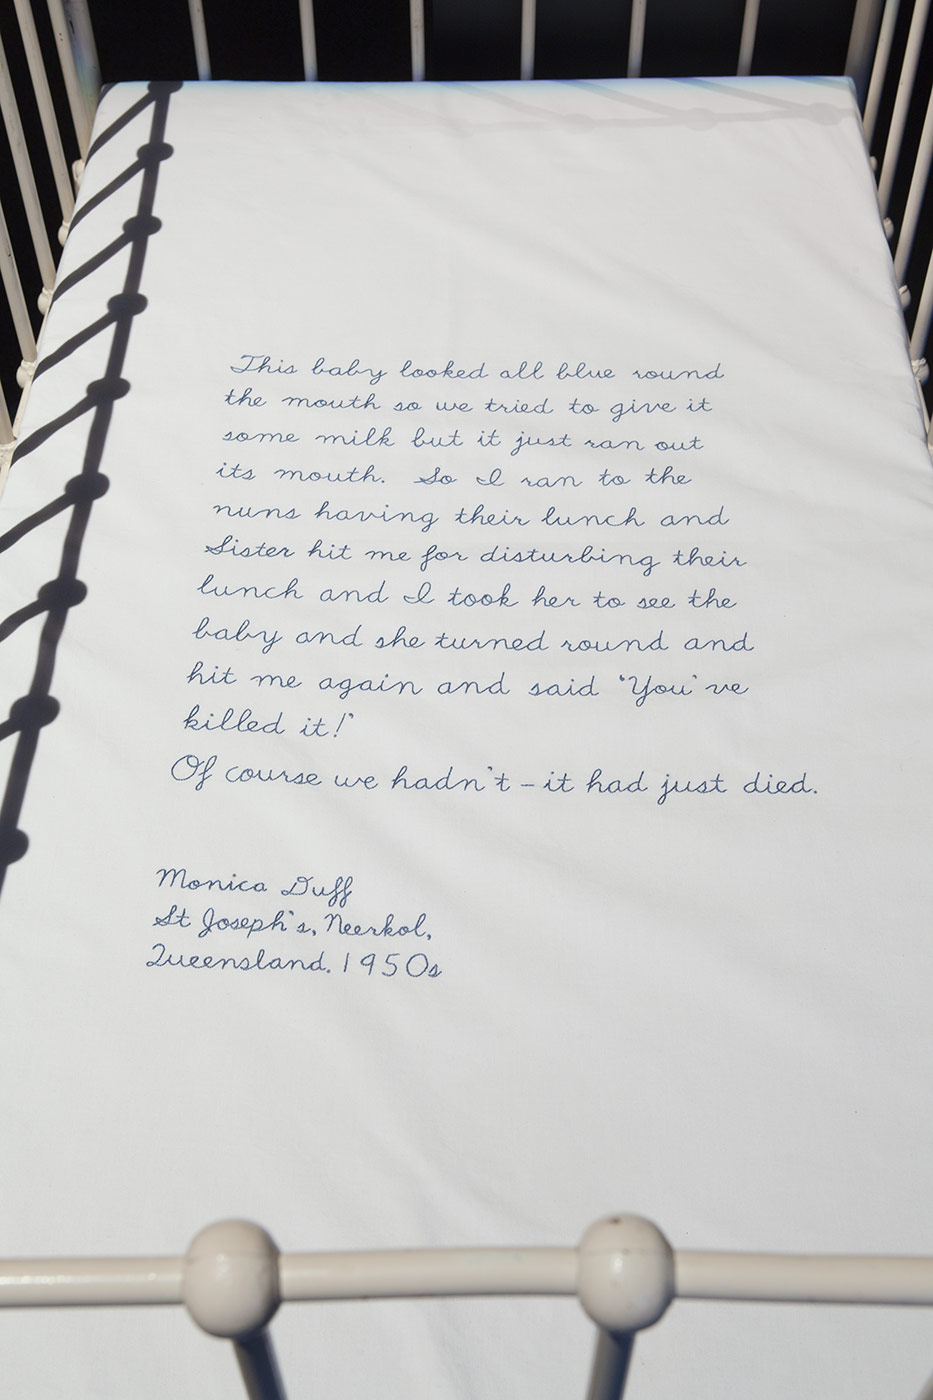 This baby looked all blue round
the mouth so we tried to give it
some milk but it just ran out
its mouth. So I ran to the
nuns having their lunch and
Sister hit me for disturbing their
lunch and I took her to see the
baby and she turned round and
hit me again and said ‘You’ve
killed it!’
Of course we hadn’t – it had just died.
Monica Duff
St Joseph’s, Neerkol,
Queensland. 1950s